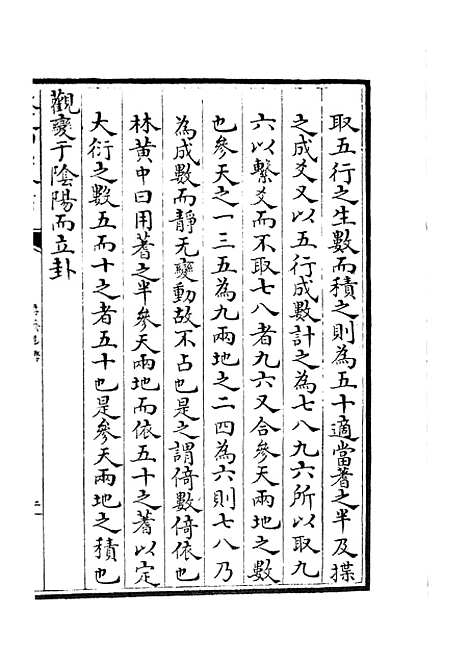 取五行之生數而積之則為五十適當蓍之半及揲
之成爻又以五行成數計之為七八九六所以取九
六以繫爻而不取七八者九六又合參天兩地之數
也參天之一三五為九兩地之二四為六則七八乃
為成數而靜无變動故不占也是之謂倚數倚依也
林黄中曰用蓍之半參天兩地而依五十之蓍以定
大衍之數五而十之者五十也是參天兩地之積也
觀變于陰陽而立卦